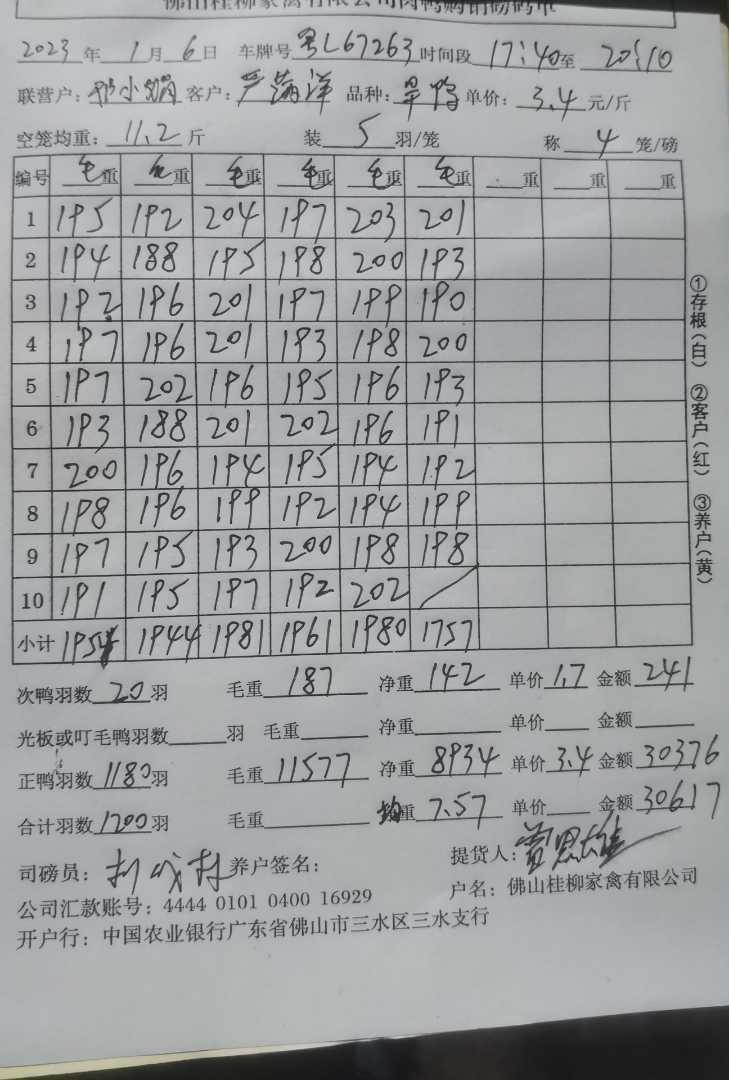 佛山桂柳家禽有限公司肉鸭购销磅码单
2023年1月6日 车牌号粤L67263时间段17:40至20:10
联营户:小娟 客户:严满洋 品种:旱鸭 单价:3.4元/斤
空笼均重:11.2斤 装5羽/笼 称4笼/磅
编号 毛重 毛重 毛重 毛重 毛重 毛重 重 重 重
1 195 192 204 197 203 201
2 194 188 195 198 200 193
3 192 196 201 197 199 190
4 197 196 201 193 198 200
5 197 202 196 195 196 193
6 193 188 201 202 196 191
7 200 196 194 195 194 192
8 198 196 199 192 194 199
9 197 195 193 200 198 198
10 191 195 197 192 202
小计 1954 1944 1981 1961 1980 1757
次鸭羽数20羽 毛重187 净重142 单价1.7 金额241
光板或叮毛鸭羽数 羽 毛重 净重 单价 金额
正鸭羽数1180羽 毛重11577 净重8934 单价3.4 金额30376
合计羽数1200羽 毛重 均重7.57 单价 金额30617
司磅员: 养户签名: 提货人:
公司汇款账号:4444 0101 0400 16929 户名:佛山桂柳家禽有限公司
开户行:中国农业银行广东省佛山市三水区三水支行
①存根(白) ②客户(红) ③养户(黄)